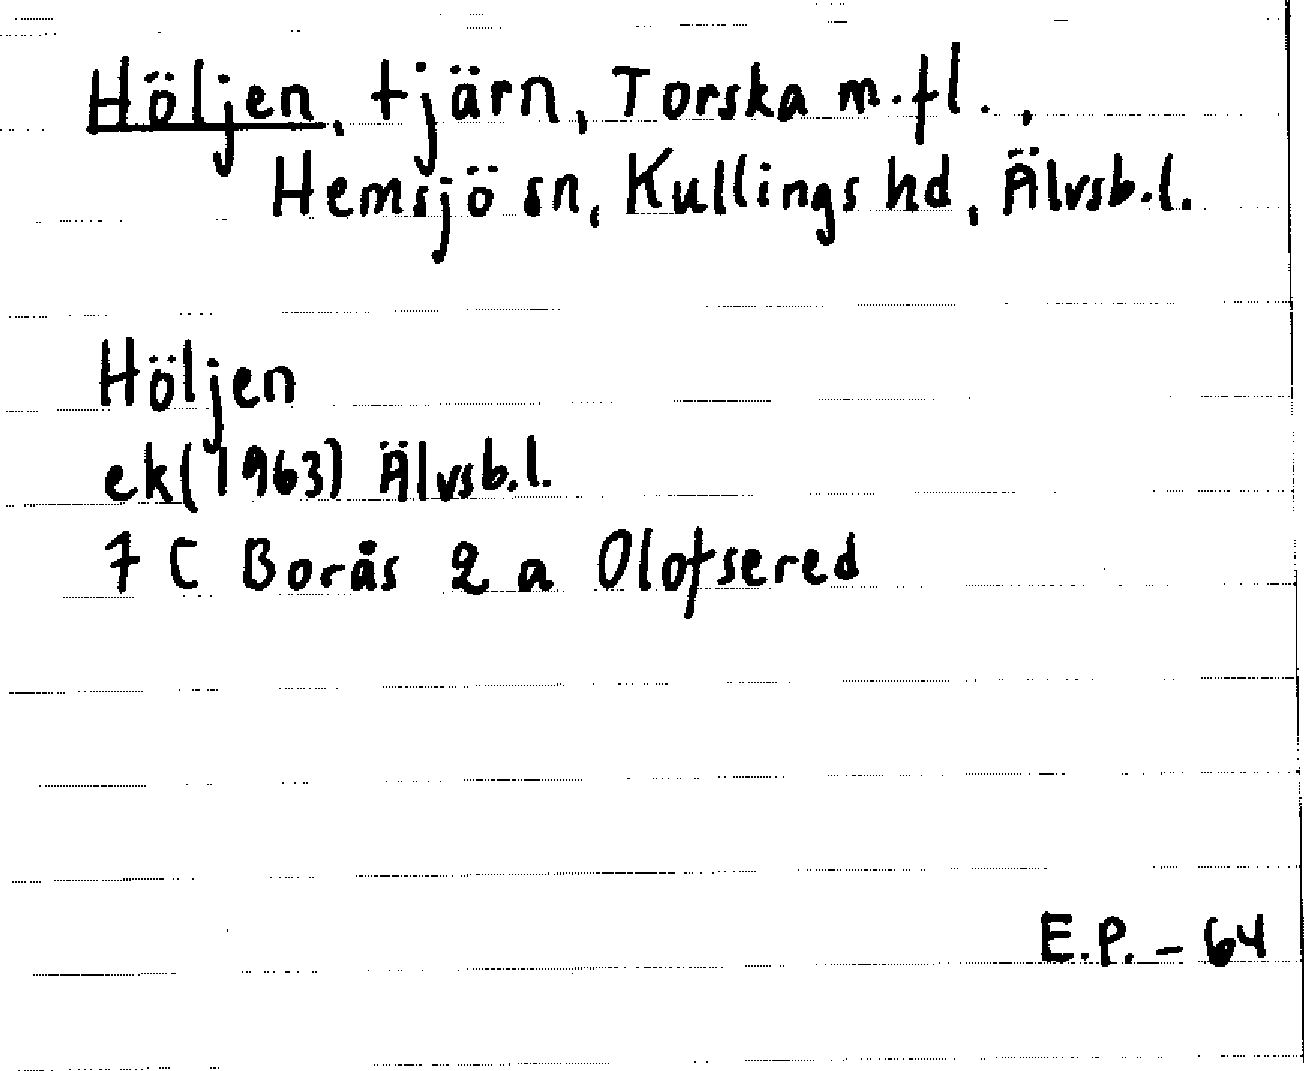 Höljen, tjärn, Torska m.fl.,
Hemsjö sn, Kullings hd, Älvsb.l.
Höljen
ek(1963) Älvsb.l.
7 C Borås 2 a Olofsered
E.P. - 64